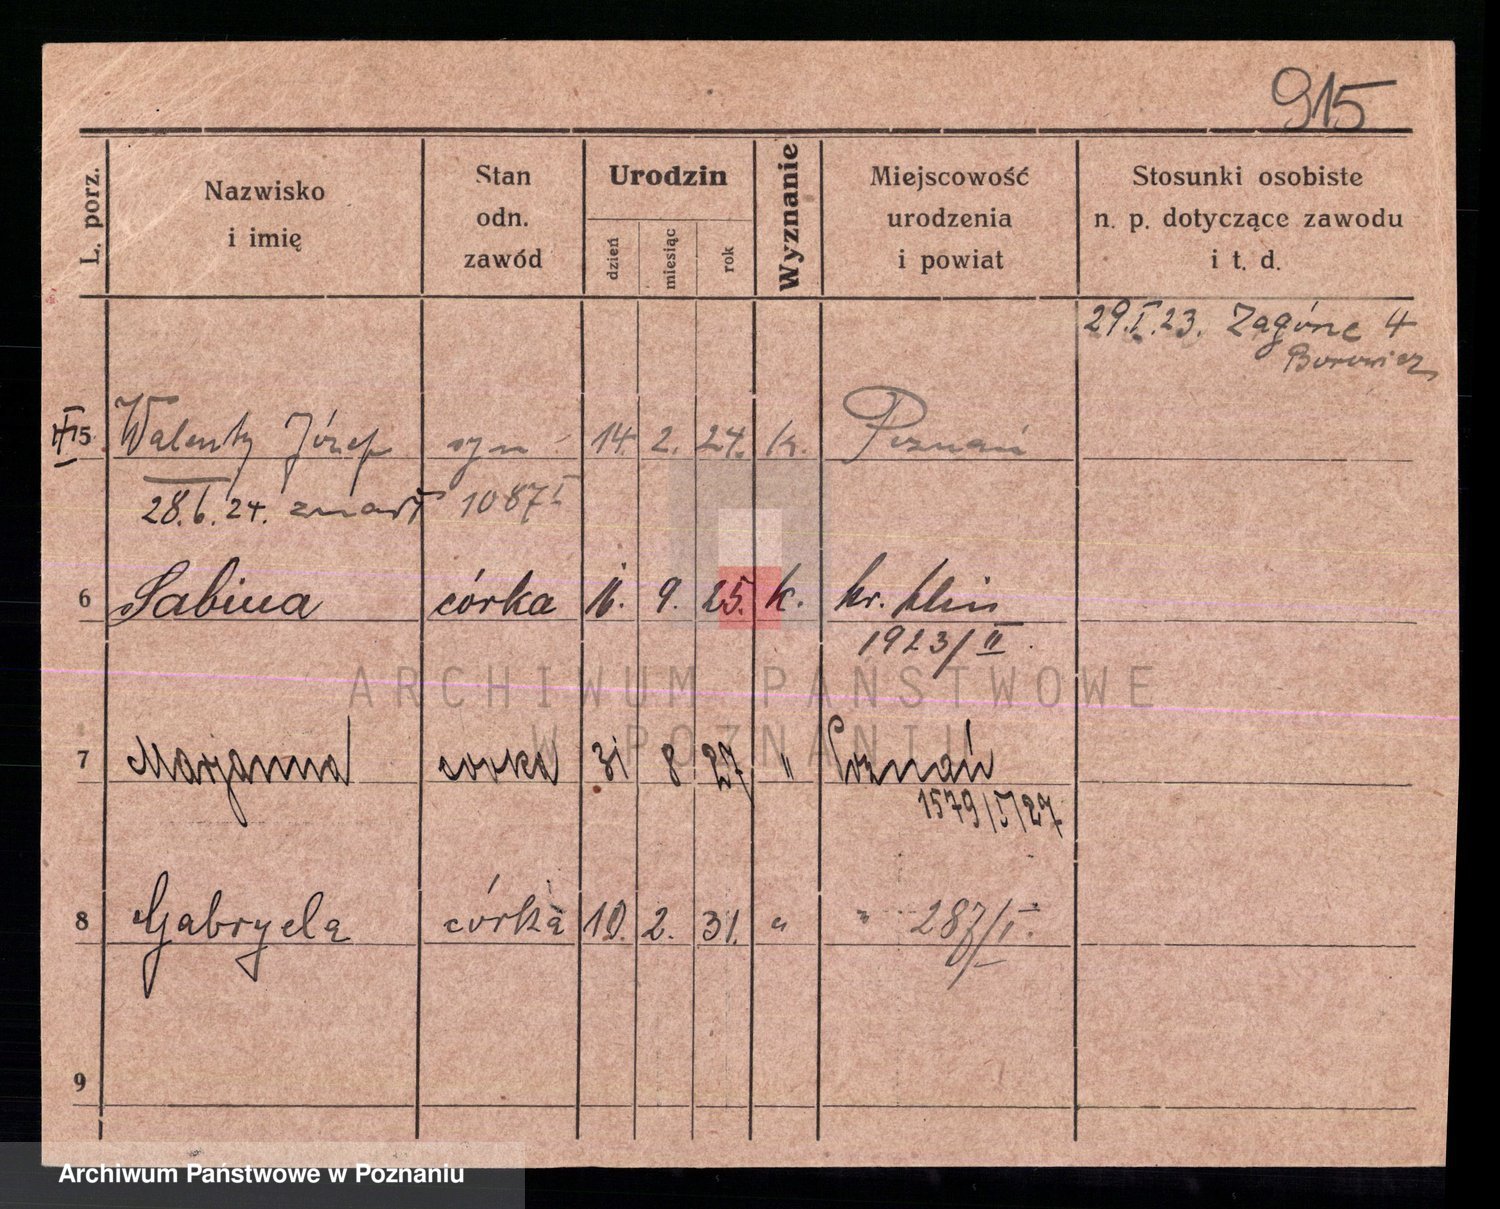 915
L. porz.
Nazwisko
i imię
Stan
odn.
zawód
Urodzin
dzień
miesiąc
rok
Wyznanie
Miejscowość
urodzenia
i powiat
Stosunki osobiste
n. p. dotyczące zawodu
i t. d.
29.I.23. Zagórze 4
Borowicz
5 Walenty Józef syn 14. 2. 24. k. Poznań
28.6.24. zmarł 1087 I
6 Sabina córka 11. 9. 25. k.
1923/II.
7 Marjanna corka 31 8 27 " Poznań
1579/I/27
8 Gabryela córka 10. 2. 31. " " 287/I.
9
ARCHIWUM PAŃSTWOWE
W POZNANIU
Archiwum Państwowe w Poznaniu